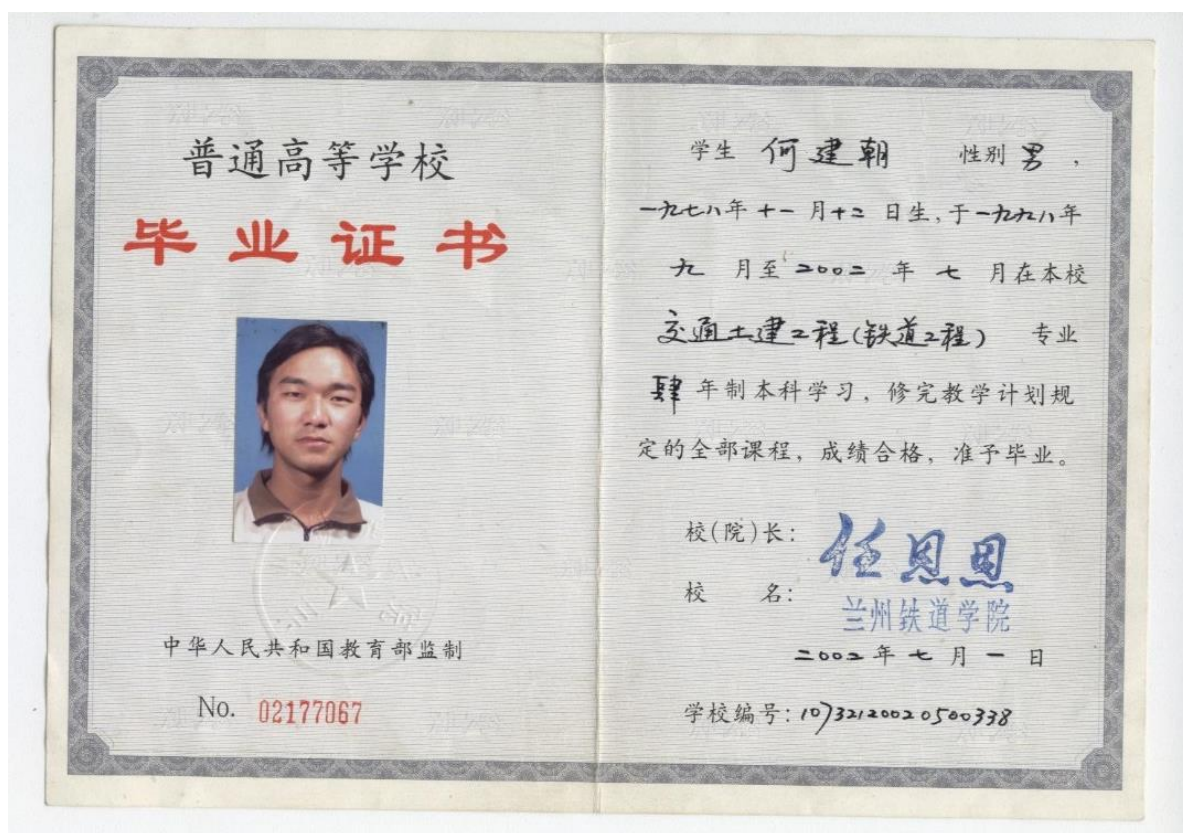 普通高等学校
毕业证书
中华人民共和国教育部监制
No. 02177067
学生 何建朝 性别 男,
一九七八年十一月十二日生,于一九九八年
九月至二00二年七月在本校
交通土建工程(铁道工程) 专业
肆年制本科学习,修完教学计划规
定的全部课程,成绩合格,准予毕业。
校(院)长: 任恩恩
校 名: 兰州铁道学院
二00二年七月一日
学校编号: 10732120020500338